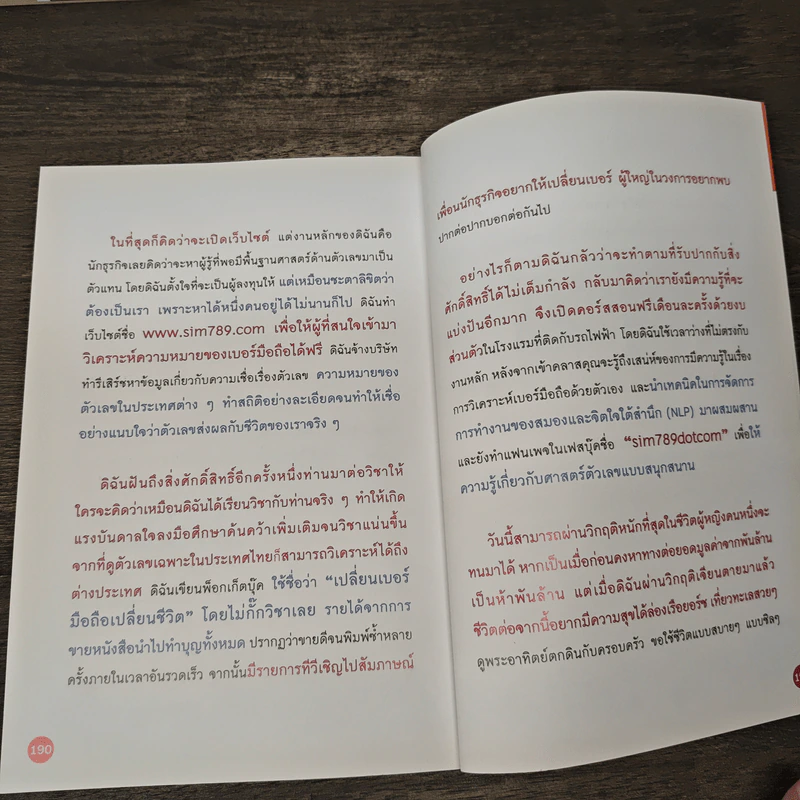 ในที่สุดก็คิดว่าจะเปิดเว็บไซต์ แต่งานหลักของดิฉันคือ
นักธุรกิจเลยคิดว่าจะหาผู้รู้ที่พอมีพื้นฐานศาสตร์ด้านตัวเลขมาเป็น
ตัวแทน โดยดิฉันตั้งใจที่จะเป็นผู้ลงทุนให้ แต่เหมือนชะตาลิขิตว่า
ต้องเป็นเรา เพราะหาได้หนึ่งคนอยู่ได้ไม่นานก็ไป ดิฉันทำ
เว็บไซต์ชื่อ www.sim789.com เพื่อให้ผู้ที่สนใจเข้ามา
วิเคราะห์ความหมายของเบอร์มือถือได้ฟรี ดิฉันจ้างบริษัท
ทำรีเสิร์ชหาข้อมูลเกี่ยวกับความเชื่อเรื่องตัวเลข ความหมายของ
ตัวเลขในประเทศต่าง ๆ ทำสถิติอย่างละเอียดจนทำให้เชื่อ
อย่างแนบใจว่าตัวเลขส่งผลกับชีวิตของเราจริง ๆ
ดิฉันฝันถึงสิ่งศักดิ์สิทธิ์อีกครั้งหนึ่งท่านมาต่อวิชาให้
ใครจะคิดว่าเหมือนดิฉันได้เรียนวิชากับท่านจริง ๆ ทำให้เกิด
แรงบันดาลใจลงมือศึกษาค้นคว้าเพิ่มเติมจนวิชาแน่นขึ้น
จากที่ดูตัวเลขเฉพาะในประเทศไทยก็สามารถวิเคราะห์ได้ถึง
ต่างประเทศ ดิฉันเขียนพ็อกเก็ตบุ๊ค ใช้ชื่อว่า “เปลี่ยนเบอร์
มือถือเปลี่ยนชีวิต” โดยไม่กั๊กวิชาเลย รายได้จากการ
ขายหนังสือนำไปทำบุญทั้งหมด ปรากฏว่าขายดีจนพิมพ์ซ้ำหลาย
ครั้งภายในเวลาอันรวดเร็ว จากนั้นมีรายการทีวีเชิญไปสัมภาษณ์
190
เพื่อนนักธุรกิจอยากให้เปลี่ยนเบอร์ ผู้ใหญ่ในวงการอยากพบ
ปากต่อปากบอกต่อกันไป
อย่างไรก็ตามดิฉันกลัวว่าจะทำตามที่รับปากกับสิ่ง
ศักดิ์สิทธิ์ได้ไม่เต็มกำลัง กลับมาคิดว่าเรายังมีความรู้ที่จะ
แบ่งปันอีกมาก จึงเปิดคอร์สสอนฟรีเดือนละครั้งด้วยงบ
ส่วนตัวในโรงแรมที่ติดกับรถไฟฟ้า โดยดิฉันใช้เวลาว่างที่ไม่ตรงกับ
งานหลัก หลังจากเข้าคลาสคุณจะรู้ถึงเสน่ห์ของการมีความรู้ในเรื่อง
การวิเคราะห์เบอร์มือถือด้วยตัวเอง และนำเทคนิคในการจัดการ
การทำงานของสมองและจิตใจใต้สำนึก (NLP) มาผสมผสาน
และยังทำแฟนเพจในเฟสบุ๊คชื่อ “sim789dotcom” เพื่อให้
ความรู้เกี่ยวกับศาสตร์ตัวเลขแบบสนุกสนาน
วันนี้สามารถผ่านวิกฤติหนักที่สุดในชีวิตผู้หญิงคนหนึ่งจะ
ทนมาได้ หากเป็นเมื่อก่อนคงหาทางต่อยอดมูลค่าจากพันล้าน
เป็นห้าพันล้าน แต่เมื่อดิฉันผ่านวิกฤติเจียนตายมาแล้ว
ชีวิตต่อจากนี้อยากมีความสุขได้ล่องเรือยอร์ซ เที่ยวทะเลสวยๆ
ดูพระอาทิตย์ตกดินกับครอบครัว ขอใช้ชีวิตแบบสบายๆ แบบชิลๆ